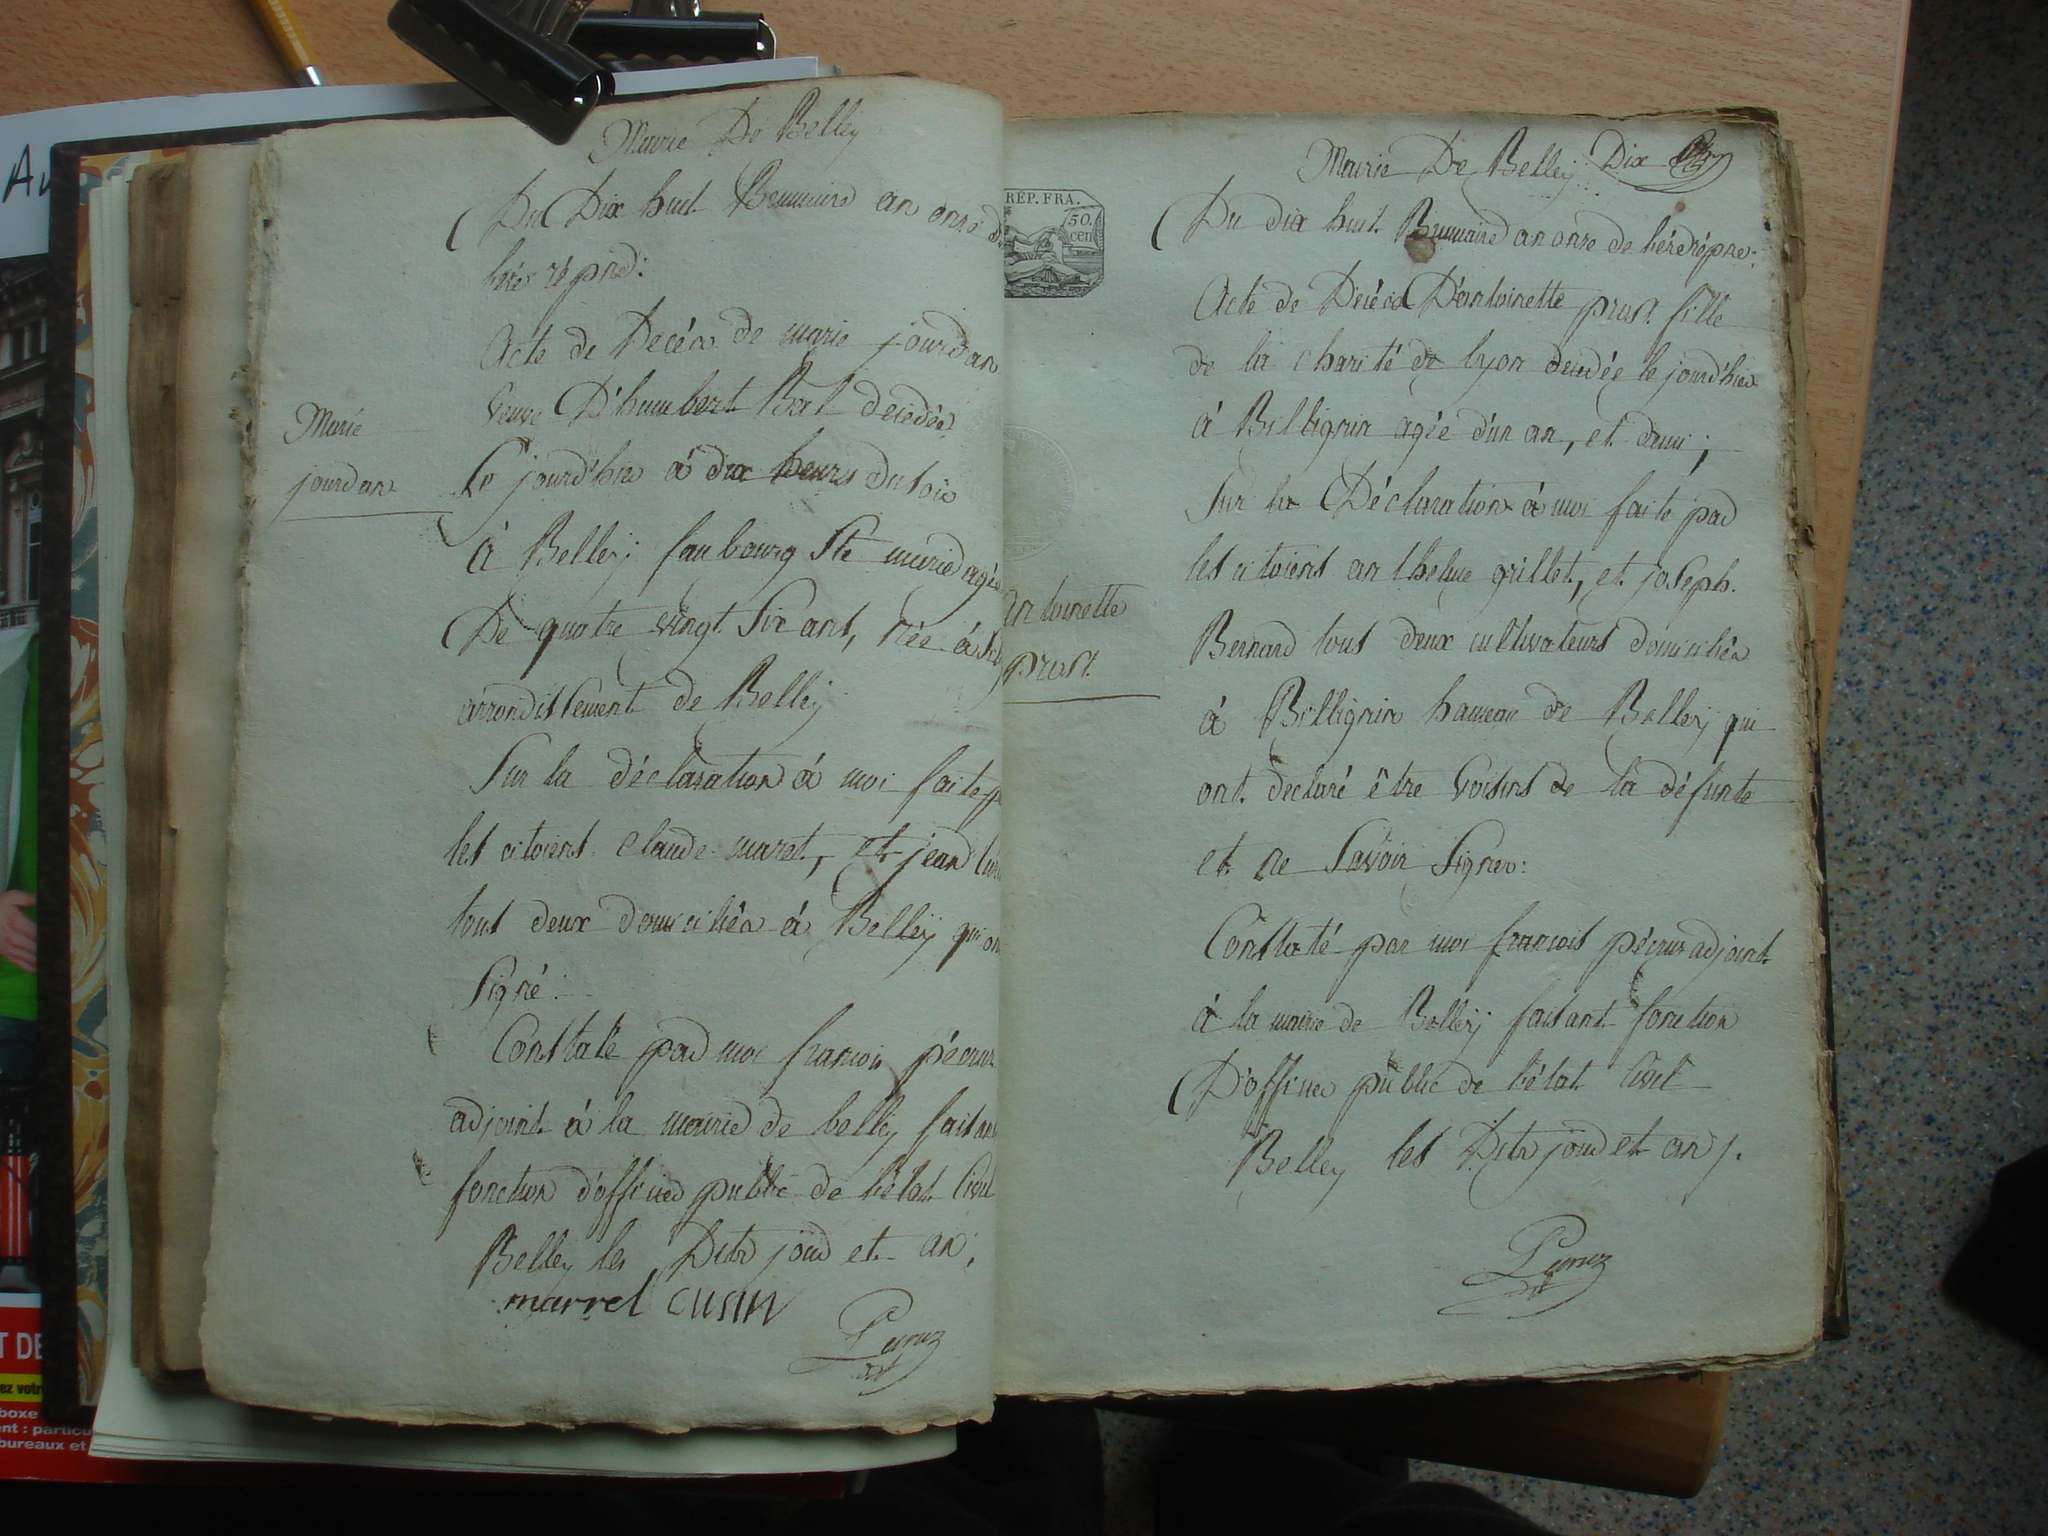 Mairie De Belley
Du Dix huit Brumaire an onze
Acte de Decés de marie jourdan
Veuve D'humbert Bal decedée
Marie
jourdan
le jourd'hier à dix heurs du soir
à Belleÿ faubourg Ste marie agée
De quatre vingt six ans, née à
arrondissement de Belleÿ
Sur la déclaration à moi faite
les citoiens claude maret, et jean
tous deux domiciliés à Belleÿ qui
Signé:
Constaté par moi francois pécruz
adjoint à la mairie de belleÿ
fonction d'officier public de l'état Civil
Belley les Dits jour et an;
marrel cusin
Pecruz
adt
Mairie De Belleÿ Dix
RÉP. FRA.
50.
cen
Du dix huit Brumaire an onze de
Acte de Décés D'antoinette prost fille
de la charité de lyon decedée le jourd'hier
à Billignin agée d'un an, et demi;
Sur la Déclaration à moi faite par
les citoiens anthelme grillet, et joseph
antoinette
prost
Bernard tous deux cultivateurs domiciliés
à Billignin hameau de Belleÿ qui
ont declaré être Voisins de la défunte
et ne Savoir Signer:
Constaté par moi francois pécruz adjoint
à la mairie de Belleÿ faisant fonction
D'officier public de l'état Civil
Belley les Dits jour et an /.
Pecruz
adt
T DE
ez votr
boxe
ent : particu
bureaux et